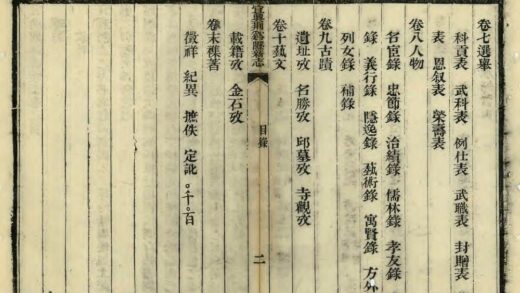 卷七選舉
科貢表 武科表 例仕表 武職表 封贈表
表 恩叙表 榮壽表
卷八人物
名宦錄 忠節錄 治績錄 儒林錄 孝友錄
錄 義行錄 隱逸錄 藝術錄 寓賢錄 方外
列女錄 補錄
卷九古蹟
遺址攷 名勝攷 邱墓攷 寺觀攷
卷十藝文
宜興荊谿縣新志 目錄 二
載籍攷 金石攷
卷末襍著
徵祥 紀異 摭佚 定訛